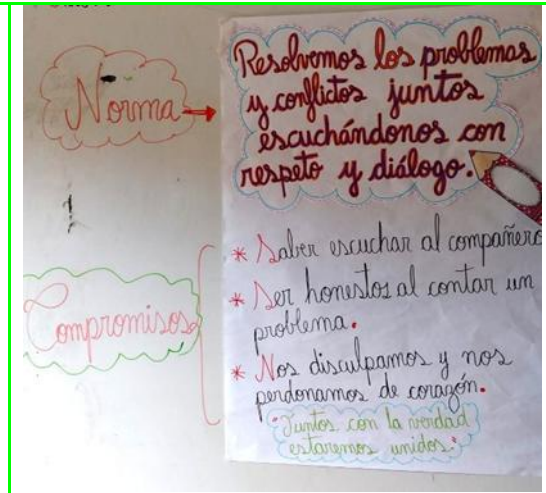 Norma
Resolvemos los problemas
y conflictos juntos
escuchándonos con
respeto y diálogo.
Compromisos
* Saber escuchar al compañero
* Ser honestos al contar un
problema.
* Nos disculpamos y nos
perdonamos de corazón.
"Juntos con la verdad
estaremos unidos."